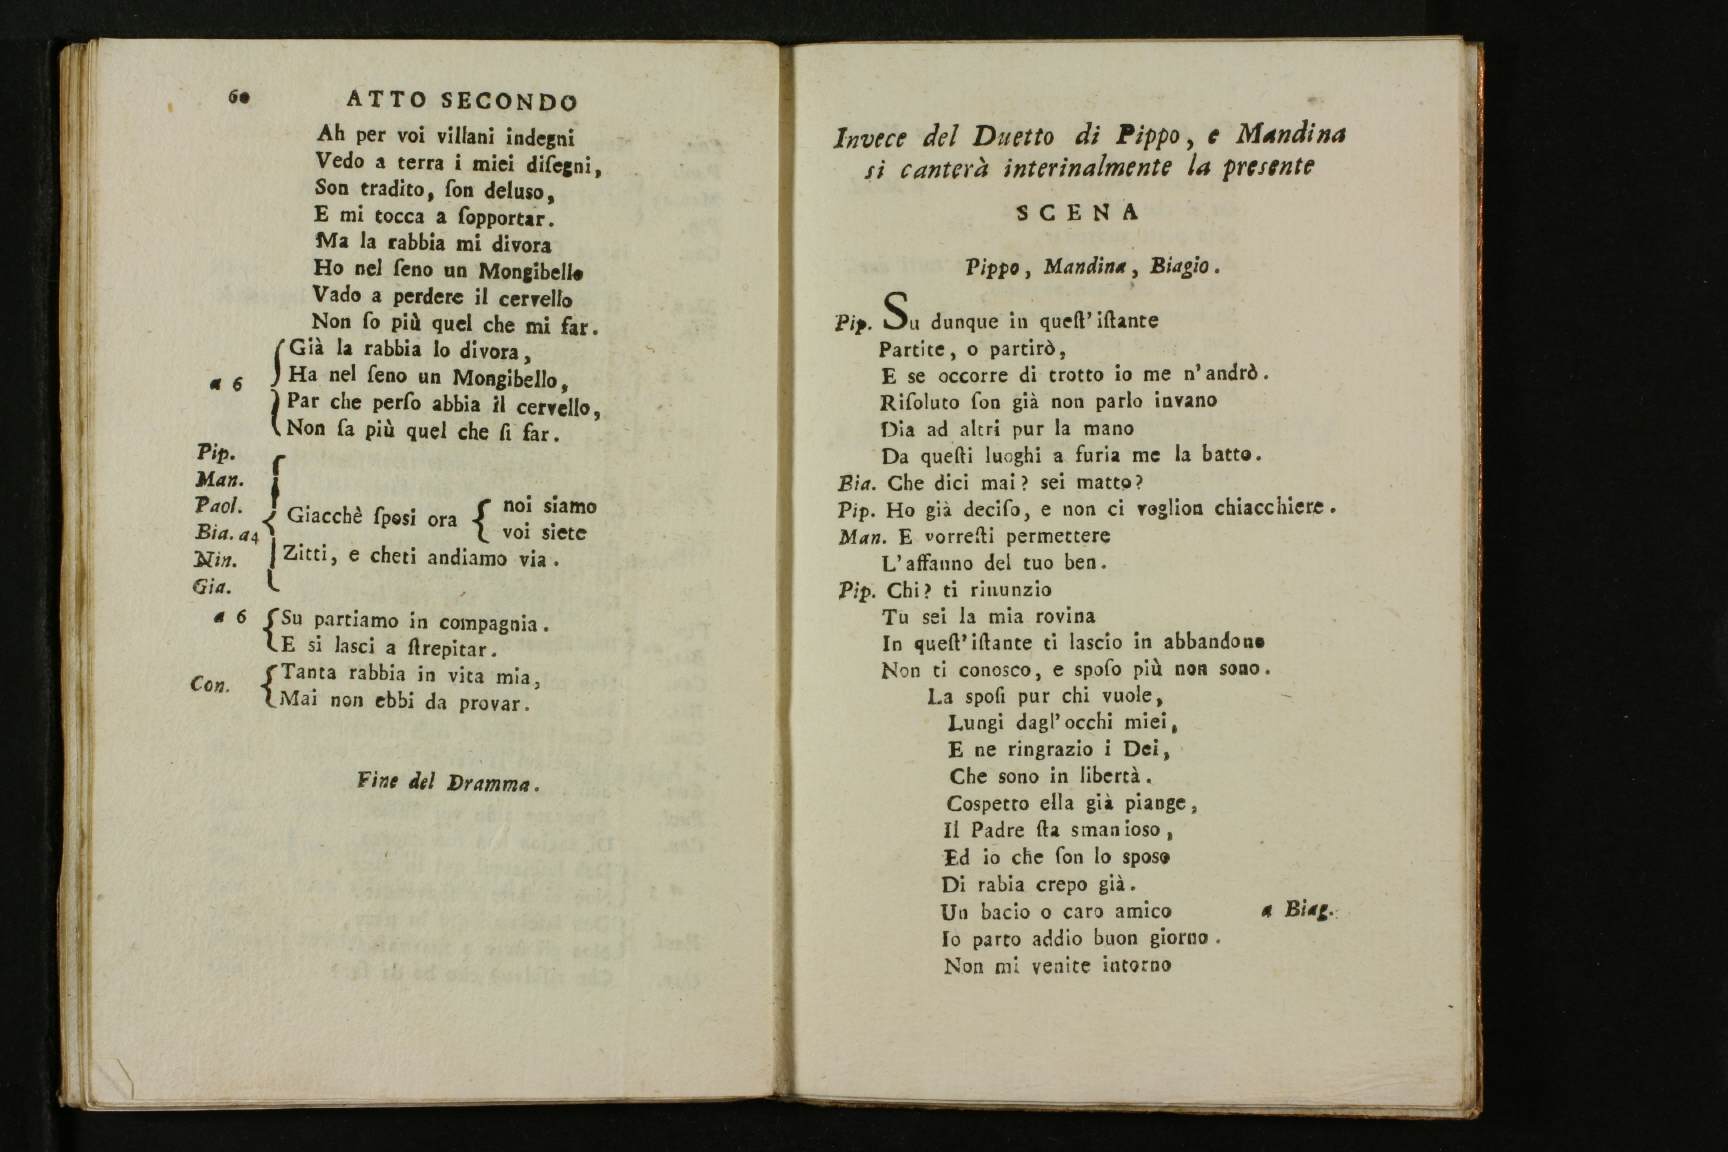 60 ATTO SECONDO
Ah per voi villani indegni
Vedo a terra i miei diſegni,
Son tradito, ſon deluso,
E mi tocca a ſopportar.
Ma la rabbia mi divora
Ho nel ſeno un Mongibello
Vado a perdere il cervello
Non ſo più quel che mi far.
Già la rabbia lo divora,
a 6 Ha nel ſeno un Mongibello,
Par che perſo abbia il cervello,
Non ſa più quel che ſi far.
Pip.
Man.
Paol. noi siamo
Giacchè ſposi ora
Bia. a4 voi siete
Nin. Zitti, e cheti andiamo via.
Gia.
a 6 Su partiamo in compagnia.
E si lasci a ſtrepitar.
Con. Tanta rabbia in vita mia,
Mai non ebbi da provar.
Fine del Dramma.
Invece del Duetto di Pippo, e Mandina
si canterà interinalmente la presente
SCENA
Pippo, Mandina, Biagio.
Pip. Su dunque in queſt' iſtante
Partite, o partirò,
E se occorre di trotto io me n' andrò.
Riſoluto ſon già non parlo invano
Dia ad altri pur la mano
Da queſti luoghi a furia me la batto.
Bia. Che dici mai? sei matto?
Pip. Ho già deciſo, e non ci voglion chiacchiere.
Man. E vorreſti permettere
L' affanno del tuo ben.
Pip. Chi? ti rinunzio
Tu sei la mia rovina
In queſt' iſtante ti lascio in abbandono
Non ti conosco, e spoſo più non sono.
La spoſi pur chi vuole,
Lungi dagl' occhi miei,
E ne ringrazio i Dei,
Che sono in libertà.
Cospetto ella già piange,
Il Padre ſta smanioso,
Ed io che ſon lo sposo
Di rabia crepo già.
Un bacio o caro amico a Biag.
Io parto addio buon giorno.
Non mi venite intorno